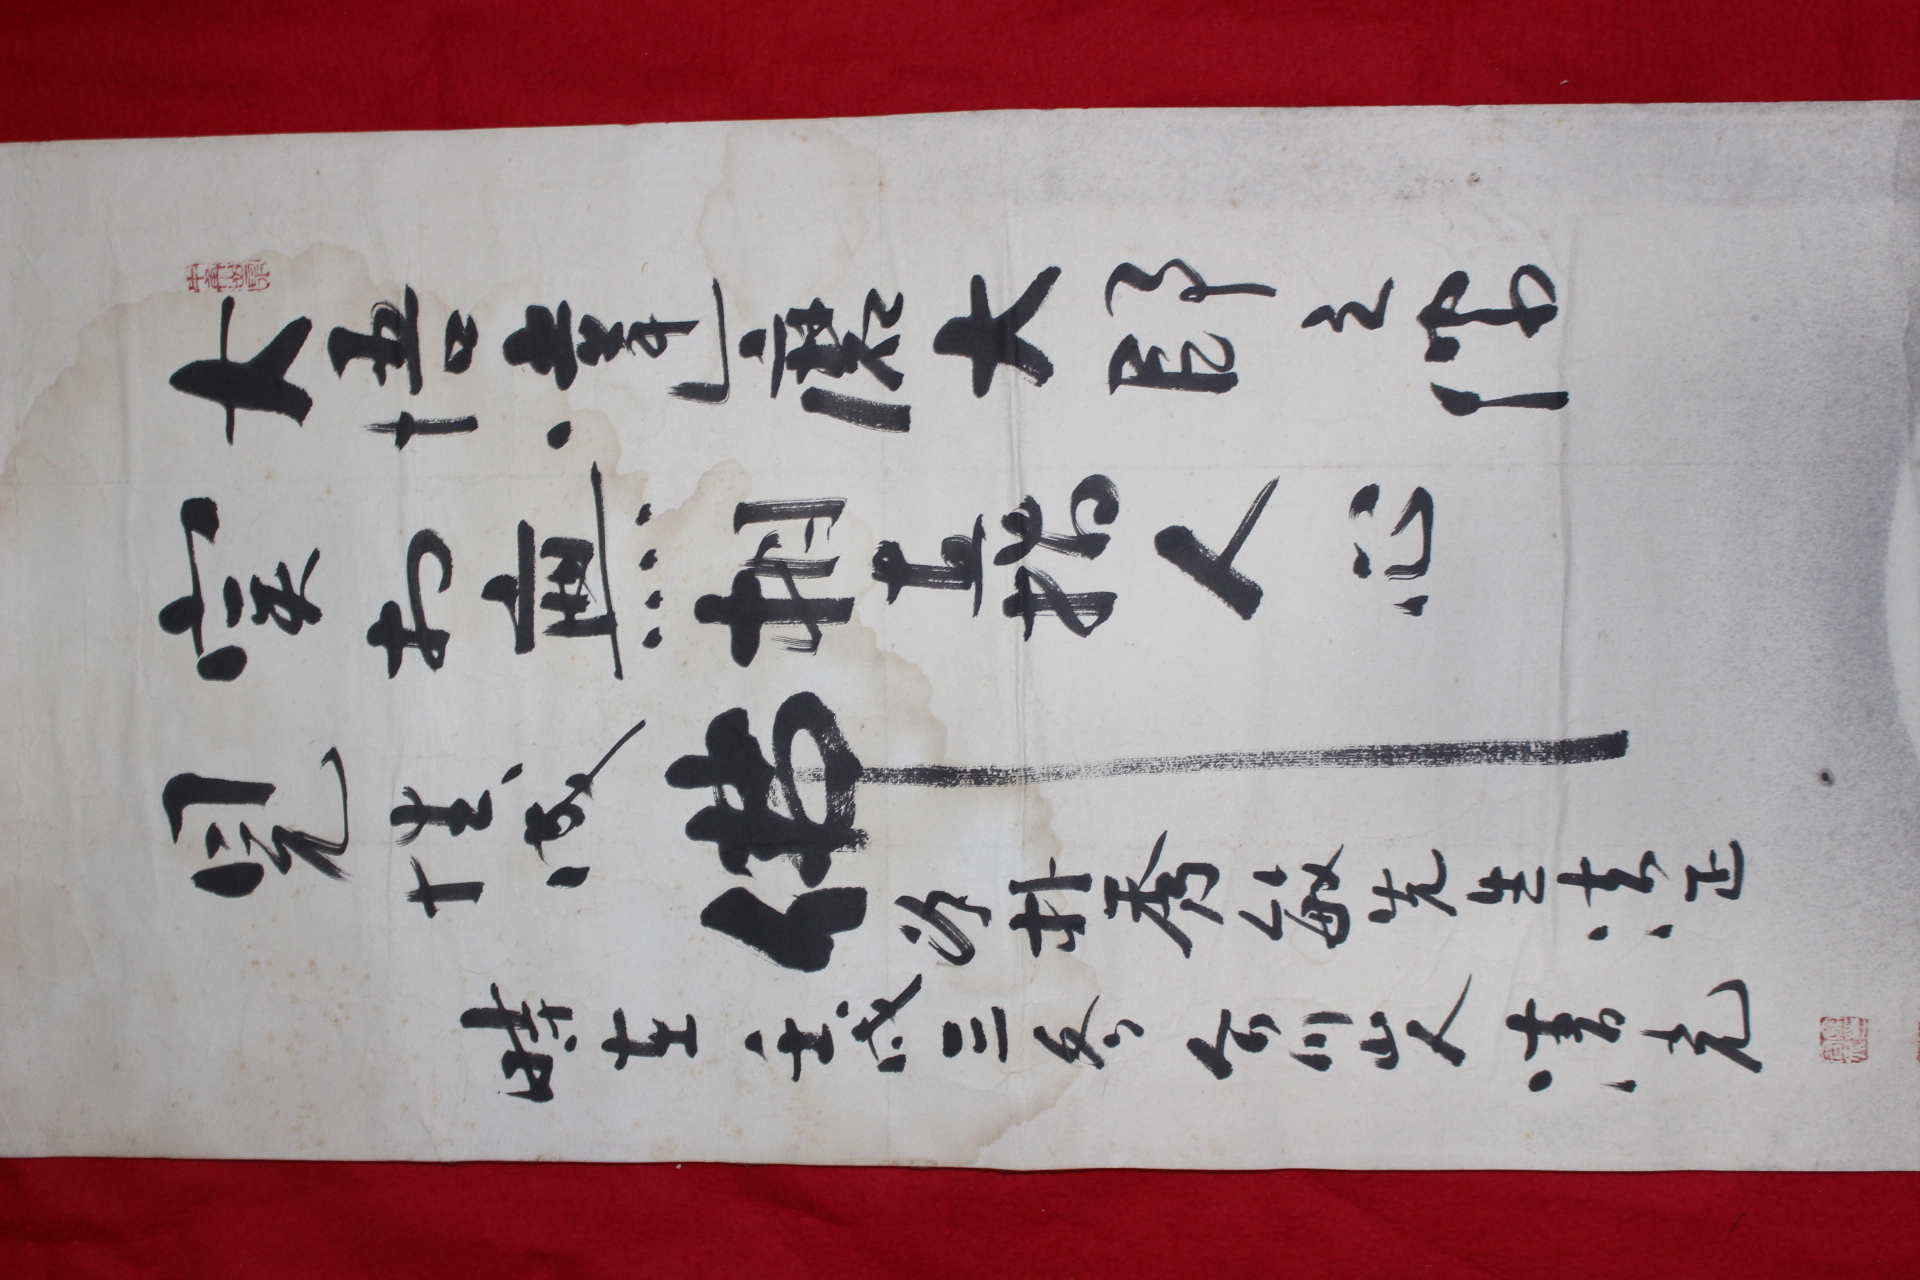 大悟達磨大師之像
実相無相直指人心
見性成佛
為朴秀敏先生法正
時在壬戌三冬 川山人 光